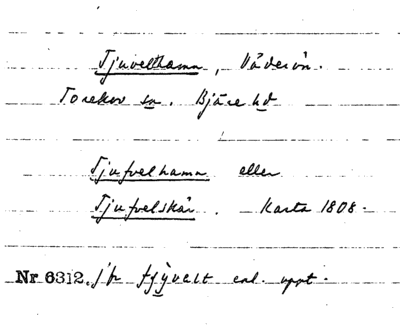 Tjuvelthamn, Väderön.
Torekov sn. Bjäre hd
Tjufvelhamn eller
Tjufvelskär. Karta 1808.
Nr 6312. jfr enl. uppt.